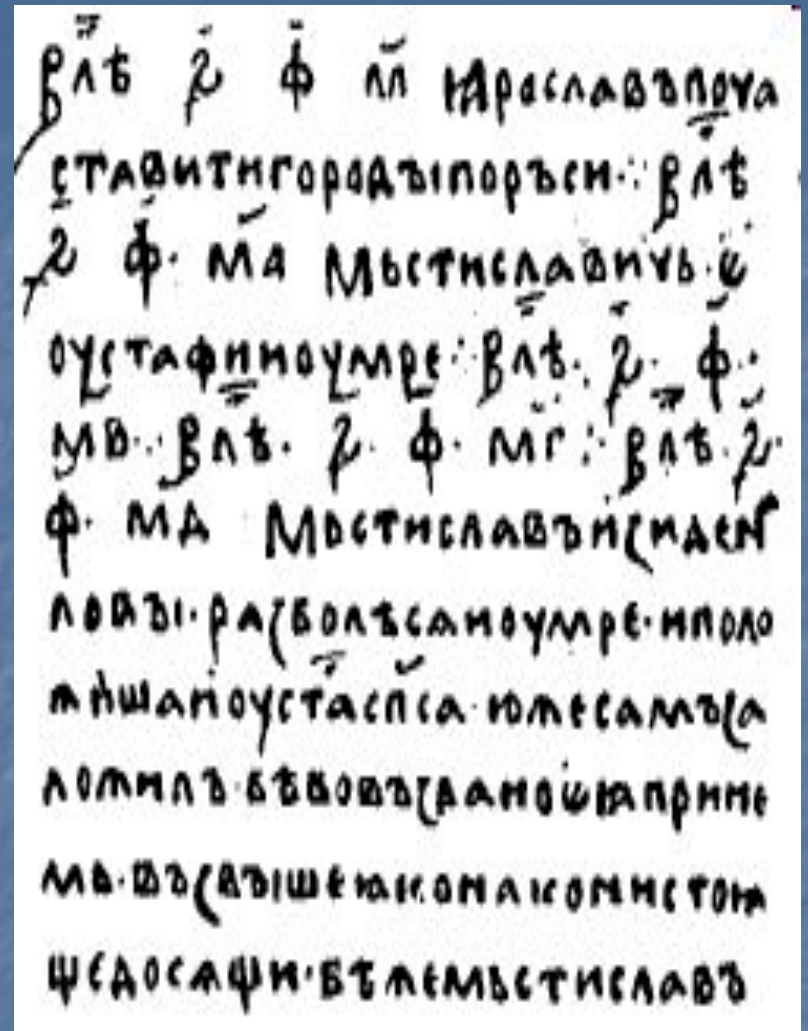 влѣт҃ ҂ѕ҃ ф҃ м҃ ꙗрославъпоча
ставитигородъıпоръси ⁘ влѣт҃
҂ѕ҃ ф҃· м҃а мьстиславичь·є
оустафииоумре ⁘ влѣт҃· ҂ѕ҃· ф҃·
м҃в ⁘ влѣт҃· ҂ѕ҃· ф҃· м҃г ⁘ влѣт҃·҂ѕ҃·
ф҃· м҃д мьстиславъизиден
ловъı·разболѣсѧиоумре·иполо
жишаиоуст҃асп҃са·южесамъза
ложилъ·бѣбовъзданоѥꙗприне
мь·възвъıшеꙗконаконистоꙗ
щедосѧщи·бѣжемьстиславъ